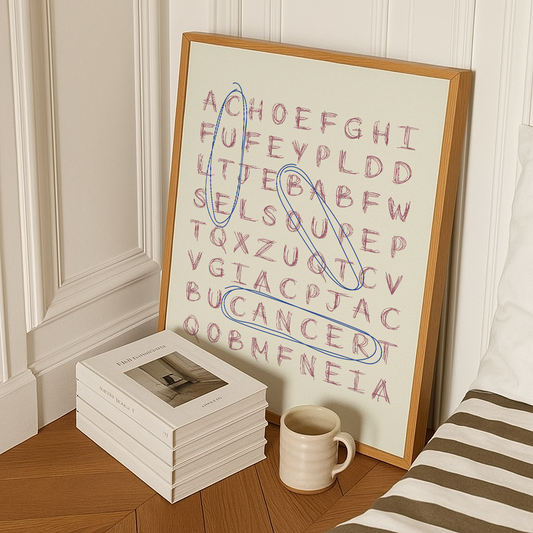 ACHOEFGHI
FUFEYPLDD
LTJEBABFW
SELSOUREP
TQXZUQTCV
VGIACPJAC
BUCANCERT
QOBMFNEIA